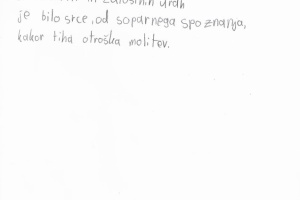 in žalostnih urah
je bilo srce, od soparnega spoznanja,
kakor tiha otroška molitov.